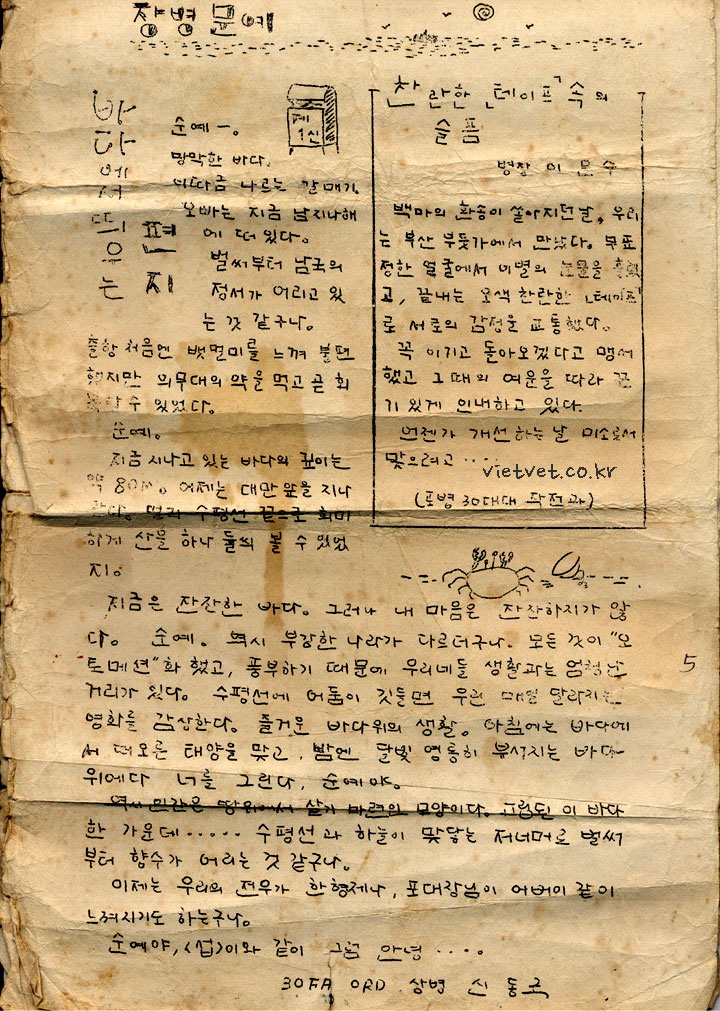 장병문예
바다에서 띄우는 편지
제1신
순예ㅡ.
망막한 바다.
이따금 나르는 갈매기.
오빠는 지금 남지나해
에 떠 있다.
벌써부터 남국의
정서가 어리고 있
는 것 같구나.
출항 처음엔 뱃멀미를 느껴 불편
했지만 의무대의 약을 먹고 곧 회
복할 수 있었다.
순예.
지금 지나고 있는 바다의 깊이는
약 80M. 어제는 대만 앞을 지나
멀리 수평선 끝으로 희미
하게 산을 하나 둘씩 볼 수 있었
지.
찬란한 「테이프」속의
슬픔
병장 이 문 수
백마의 환송이 쏟아지던날, 우리
는 부산 부둣가에서 만났다. 무표
정한 얼굴에서 이별의 눈물을 흘렸
고, 끝내는 오색 찬란한 「테이프」
로 서로의 감정을 교통했다.
꼭 이기고 돌아오겠다고 맹서
했고 그때의 여운을 따라 끈
기 있게 인내하고 있다.
언젠가 개선하는 날 미소로서
맞으려고 ....
vietvet.co.kr
(포병 30대대 작전과)
지금은 잔잔한 바다. 그러나 내 마음은 잔잔하지가 않
다. 순예. 역시 부강한 나라가 다르더구나. 모든 것이 "오
토메션"화 했고, 풍부하기 때문에 우리네들 생활과는 엄청난
거리가 있다. 수평선에 어둠이 깃들면 우린 매일 달라지는
영화를 감상한다. 즐거운 바다위의 생활. 아침에는 바다에
서 떠오른 태양을 맞고, 밤엔 달빛 영롱히 부서지는 바다
위에다 너를 그린다, 순예야.
역시 인간은 땅위에서 살기 마련인 모양이다. 고립된 이 바다
한 가운데..... 수평선과 하늘이 맞닿는 저너머로 벌써
부터 향수가 어리는 것 같구나.
이제는 우리의 전우가 한형제나, 포대장님이 어버이 같이
느껴시기도 하는구나.
순예야, <섭>이와 같이 그럼 안녕 ....
30FA ORD 상병 신 동 로
5